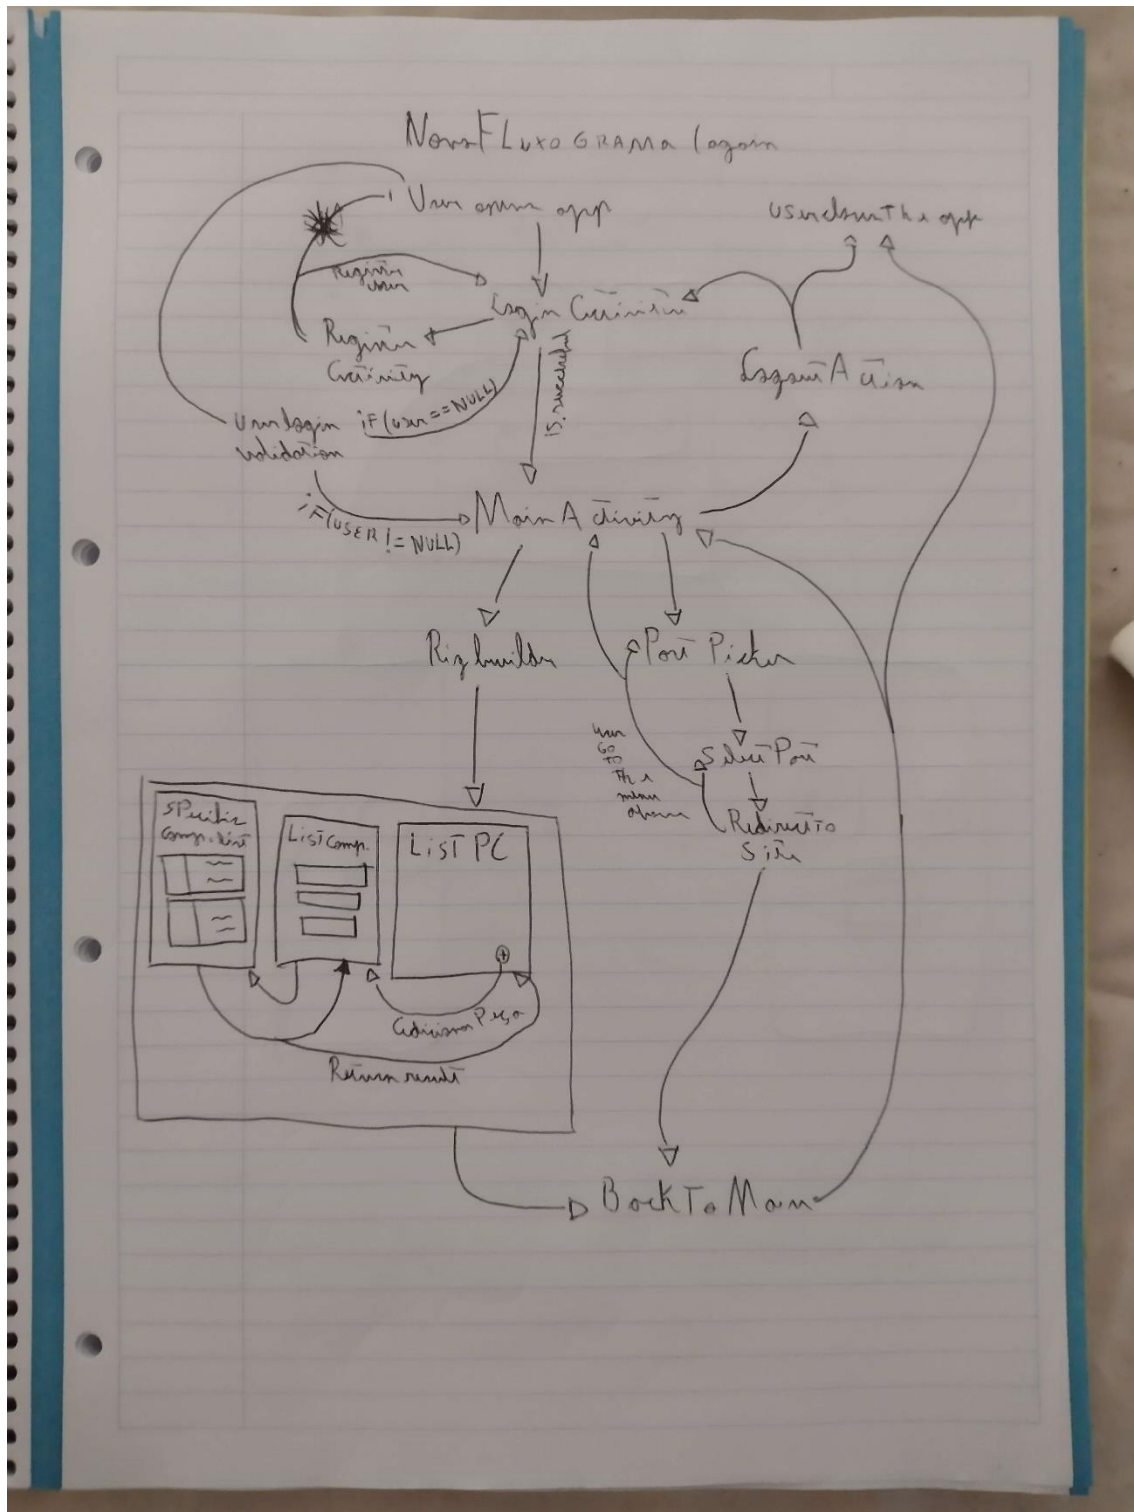 Novo FLuxoGRAMA
User opens app
user closes the app
Register
user
Login Activity
Register
Activity
is. successful
Logout Action
User login
validation
if(user==NULL)
if(USER!=NULL)
Main Activity
Rig builder
Part Picker
user
Go
TO
The
menu
Select Part
Redirect To
Site
SPecific
Comp. List
List Comp.
LisT PC
Adicionar Peça
Return result
Back To Main